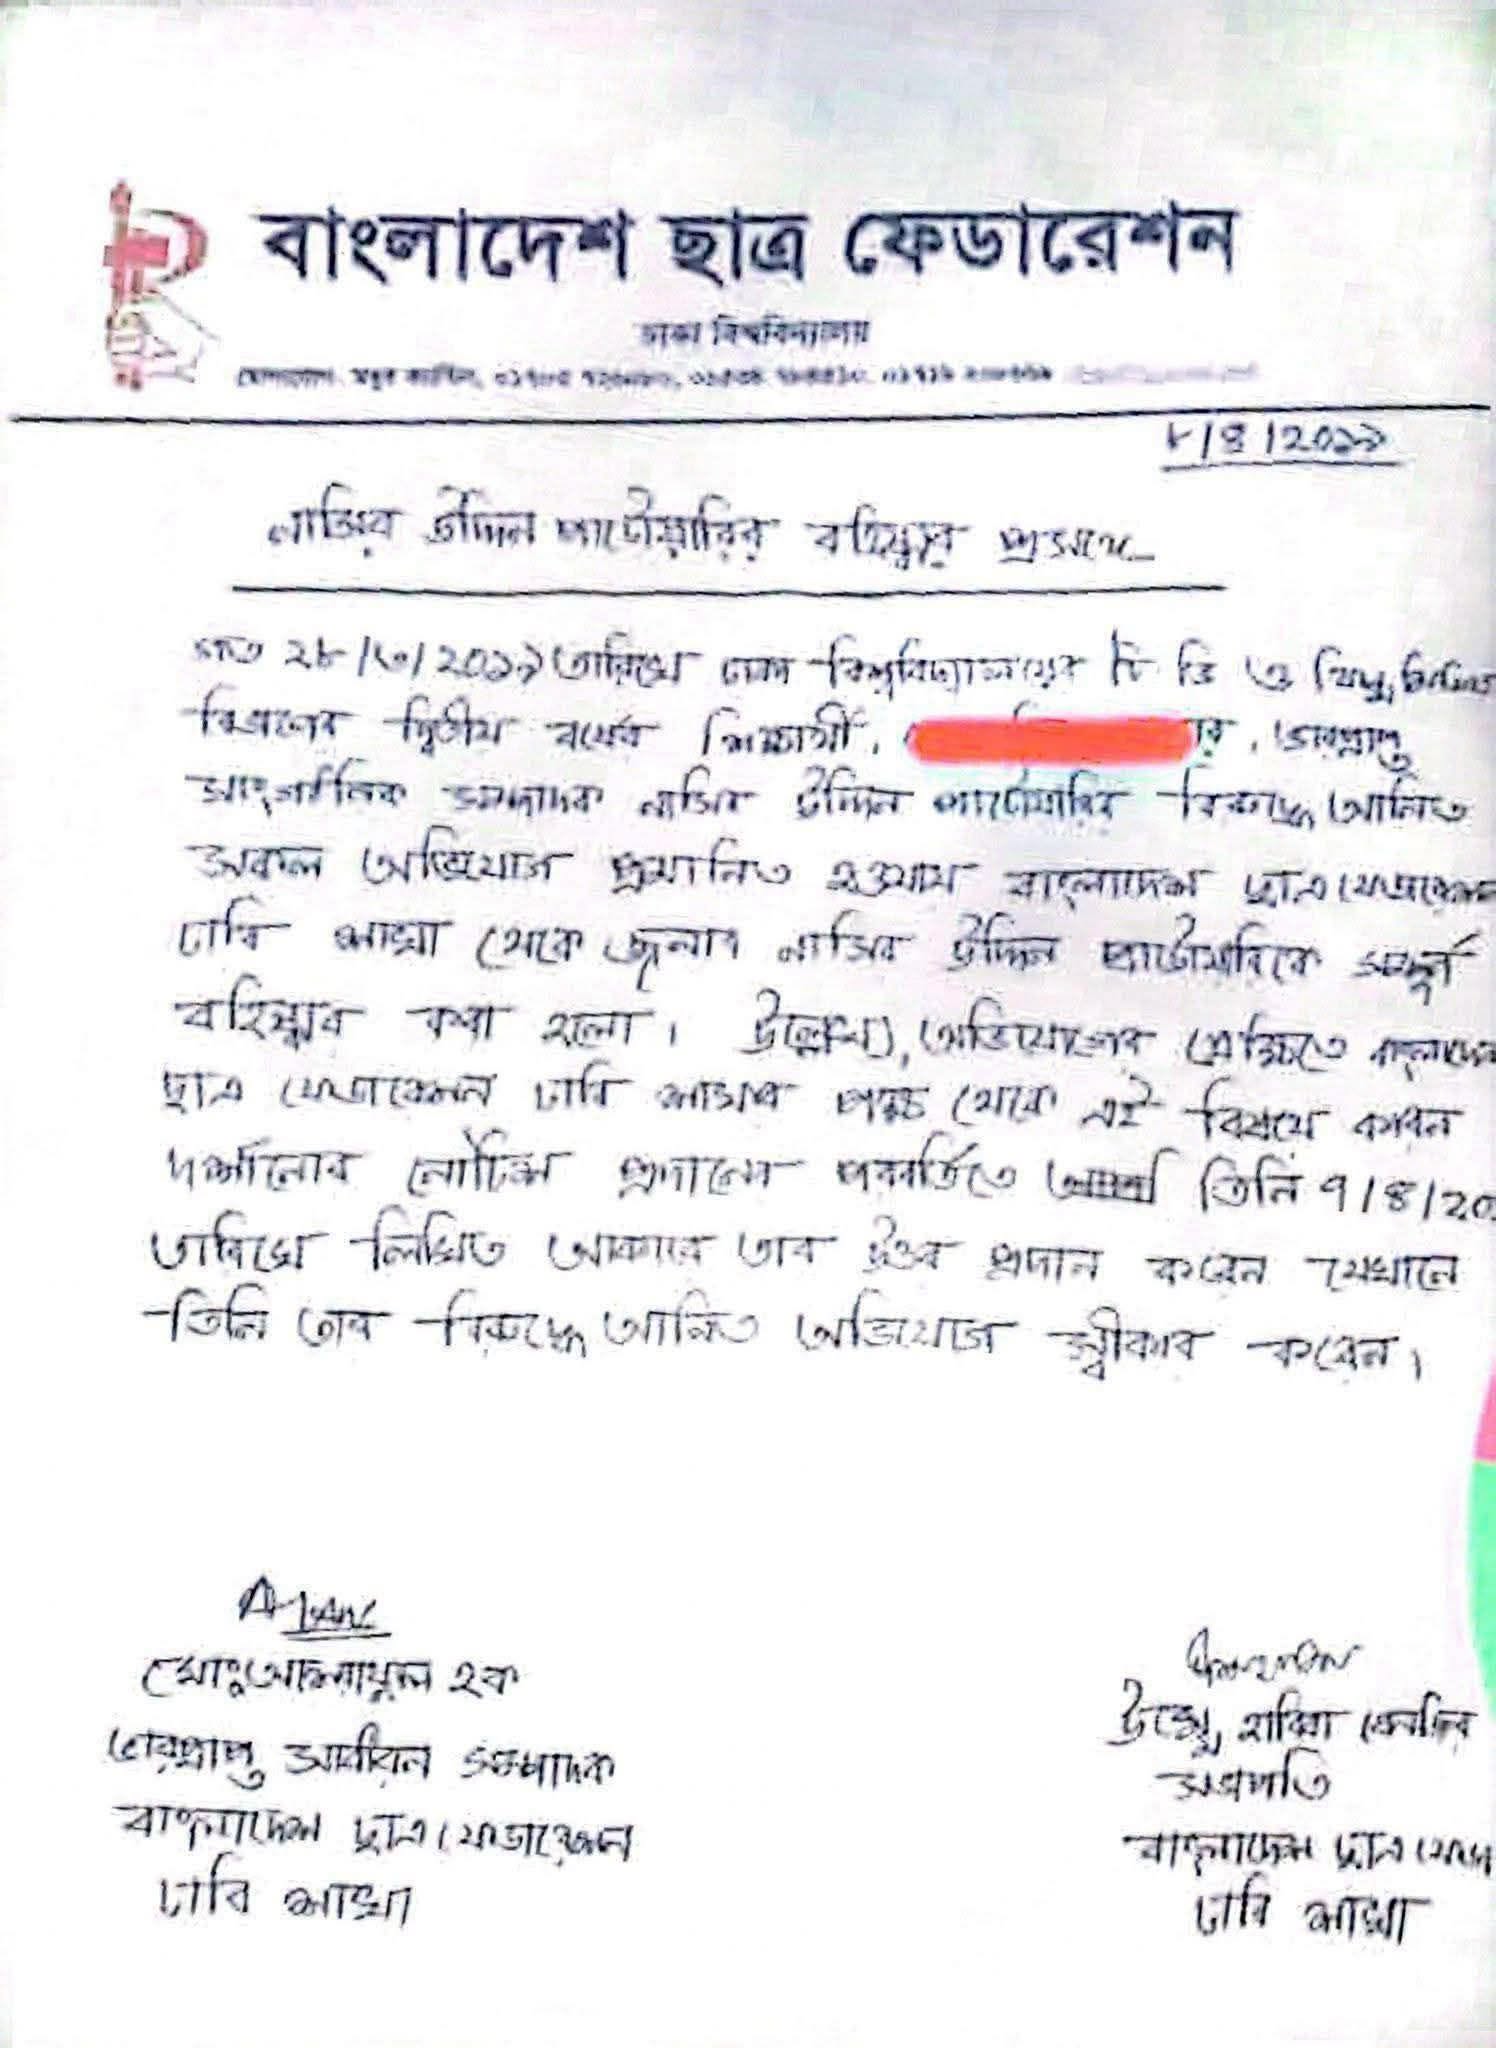 বাংলাদেশ ছাত্র ফেডারেশন
ঢাকা বিশ্ববিদ্যালয়
যোগাযোগ: মধুর ক্যান্টিন,
৮/৪/২০১৯
নাসির উদ্দিন পাটোয়ারির বহিষ্কার প্রসঙ্গে
গত ২৮/৩/২০১৯ তারিখে ঢাকা বিশ্ববিদ্যালয়ের টি ভি ও ফিল্ম
বিভাগের দ্বিতীয় বর্ষের শিক্ষার্থী, র, ভারপ্রাপ্ত
সাংগঠনিক সম্পাদক নাসির উদ্দিন পাটোয়ারির বিরুদ্ধে আনিত
সকল অভিযোগ প্রমানিত হওয়ায় বাংলাদেশ ছাত্র ফেডারেশন
ঢাবি শাখা থেকে জনাব নাসির উদ্দিন পাটোয়ারিকে সম্পূর্ণ
বহিষ্কার করা হলো। উল্লেখ্য, অভিযোগের প্রেক্ষিতে বাংলাদেশ
ছাত্র ফেডারেশন ঢাবি শাখার পক্ষ থেকে এই বিষয়ে কারন
দর্শানোর নোটিশ প্রদানের পরবর্তিতে তিনি ৭/৪/২০
তারিখে লিখিত আকারে তার উত্তর প্রদান করেন যেখানে
তিনি তার বিরুদ্ধে আনিত অভিযোগ স্বীকার করেন।
মোঃ আলামুল হক
ভারপ্রাপ্ত সাধারন সম্পাদক
বাংলাদেশ ছাত্র ফেডারেশন
ঢাবি শাখা
উম্মে হাবিবা বেনজির
সভাপতি
বাংলাদেশ ছাত্র ফেডা
ঢাবি শাখা